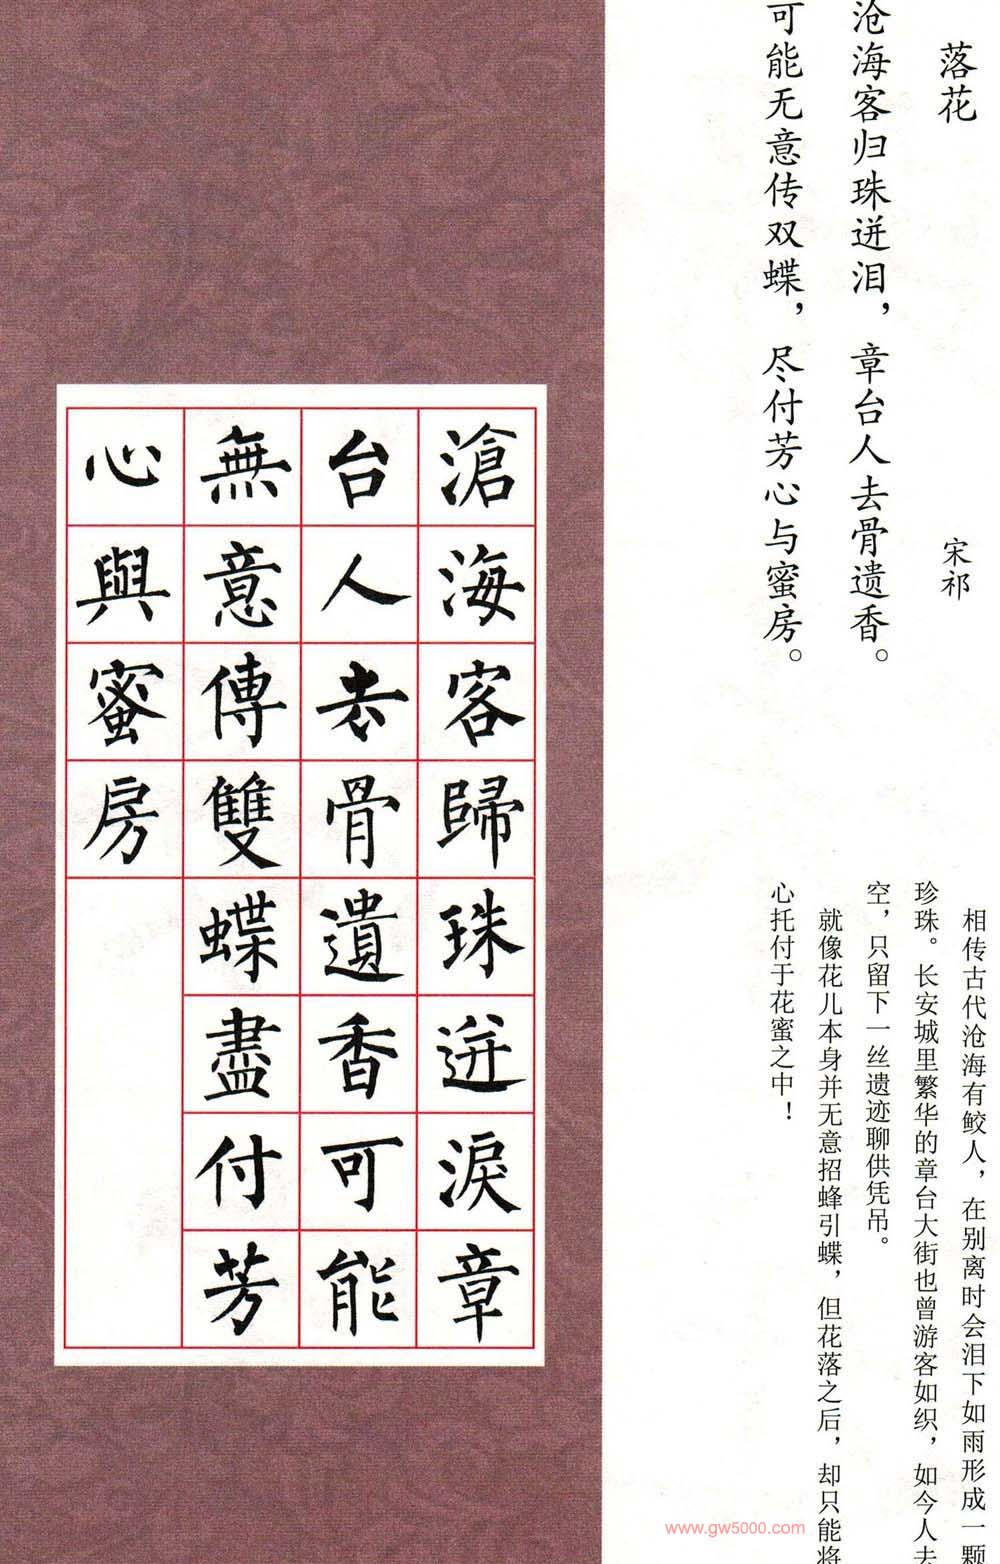 落花
宋祁
沧海客归珠迸泪，章台人去骨遗香。
可能无意传双蝶，尽付芳心与蜜房。
相传古代沧海有鲛人，在别离时会泪下如雨形成一颗
珍珠。长安城里繁华的章台大街也曾游客如织，如今人去
空，只留下一丝遗迹聊供凭吊。
就像花儿本身并无意招蜂引蝶，但花落之后，却只能将
心托付于花蜜之中！
滄海客歸珠迸淚章
台人去骨遺香可能
無意傳雙蝶盡付芳
心與蜜房
www.gw5000.com